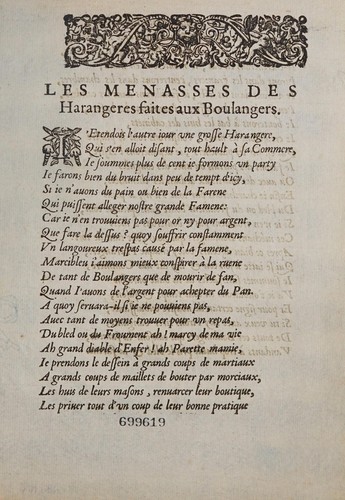 LES MENASSES DES
Harangeres faites aux Boulangers.
I'Etendois l'autre iour vne grosse Harangere,
Qui s'en alloit disant, tout hault à sa Commere,
Ie soummes plus de cent ie formons vn party
Ie farons bien du bruit dans peu de tempt d'icy,
Si ie n'auons du pain ou bien de la Farene
Qui puissent alleger nostre grande Famene:
Car ie n'en trouuiens pas pour or ny pour argent,
Que fare la dessus ? quoy souffrir constamment
Vn langoureux trespas causé par la famene,
Marcibleu i'aimons mieux conspirer à la ruene
De tant de Boulangers que de mourir de fan,
Quand I'auons de l'argent pour achepter du Pan.
A quoy seruara-il si ie ne pouuiens pas,
Auec tant de moyens trouuer pour vn repas,
Du bled ou du Froument ah! marcy de ma vie
Ah grand diable d'Enfer! ah Parette mamie,
Ie prendons le dessein à grands coups de martiaux
A grands coups de maillets de bouter par morciaux,
Les huis de leurs masons, renuarcer leur boutique,
Les priuer tout d'vn coup de leur bonne pratique
699619